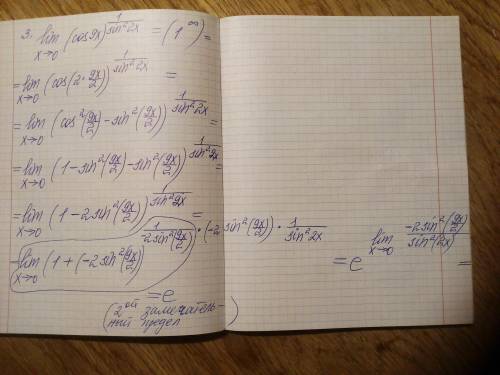 3. lim x→0 (cos 9x)^(1/sin²2x) = (1^∞) =
= lim x→0 (cos(2·9x/2))^(1/sin²2x) =
= lim x→0 (cos²(9x/2) - sin²(9x/2))^(1/sin²2x) =
= lim x→0 (1 - sin²(9x/2) - sin²(9x/2))^(1/sin²2x) =
= lim x→0 (1 - 2sin²(9x/2))^(1/sin²2x) =
= lim x→0 (1 + (-2sin²(9x/2)))^(1/(-2sin²(9x/2)) · (-2sin²(9x/2)) · 1/sin²2x)
= e^(lim x→0 (-2sin²(9x/2))/(sin²(2x))) =
= e
(2ой замечатель-
ный предел)